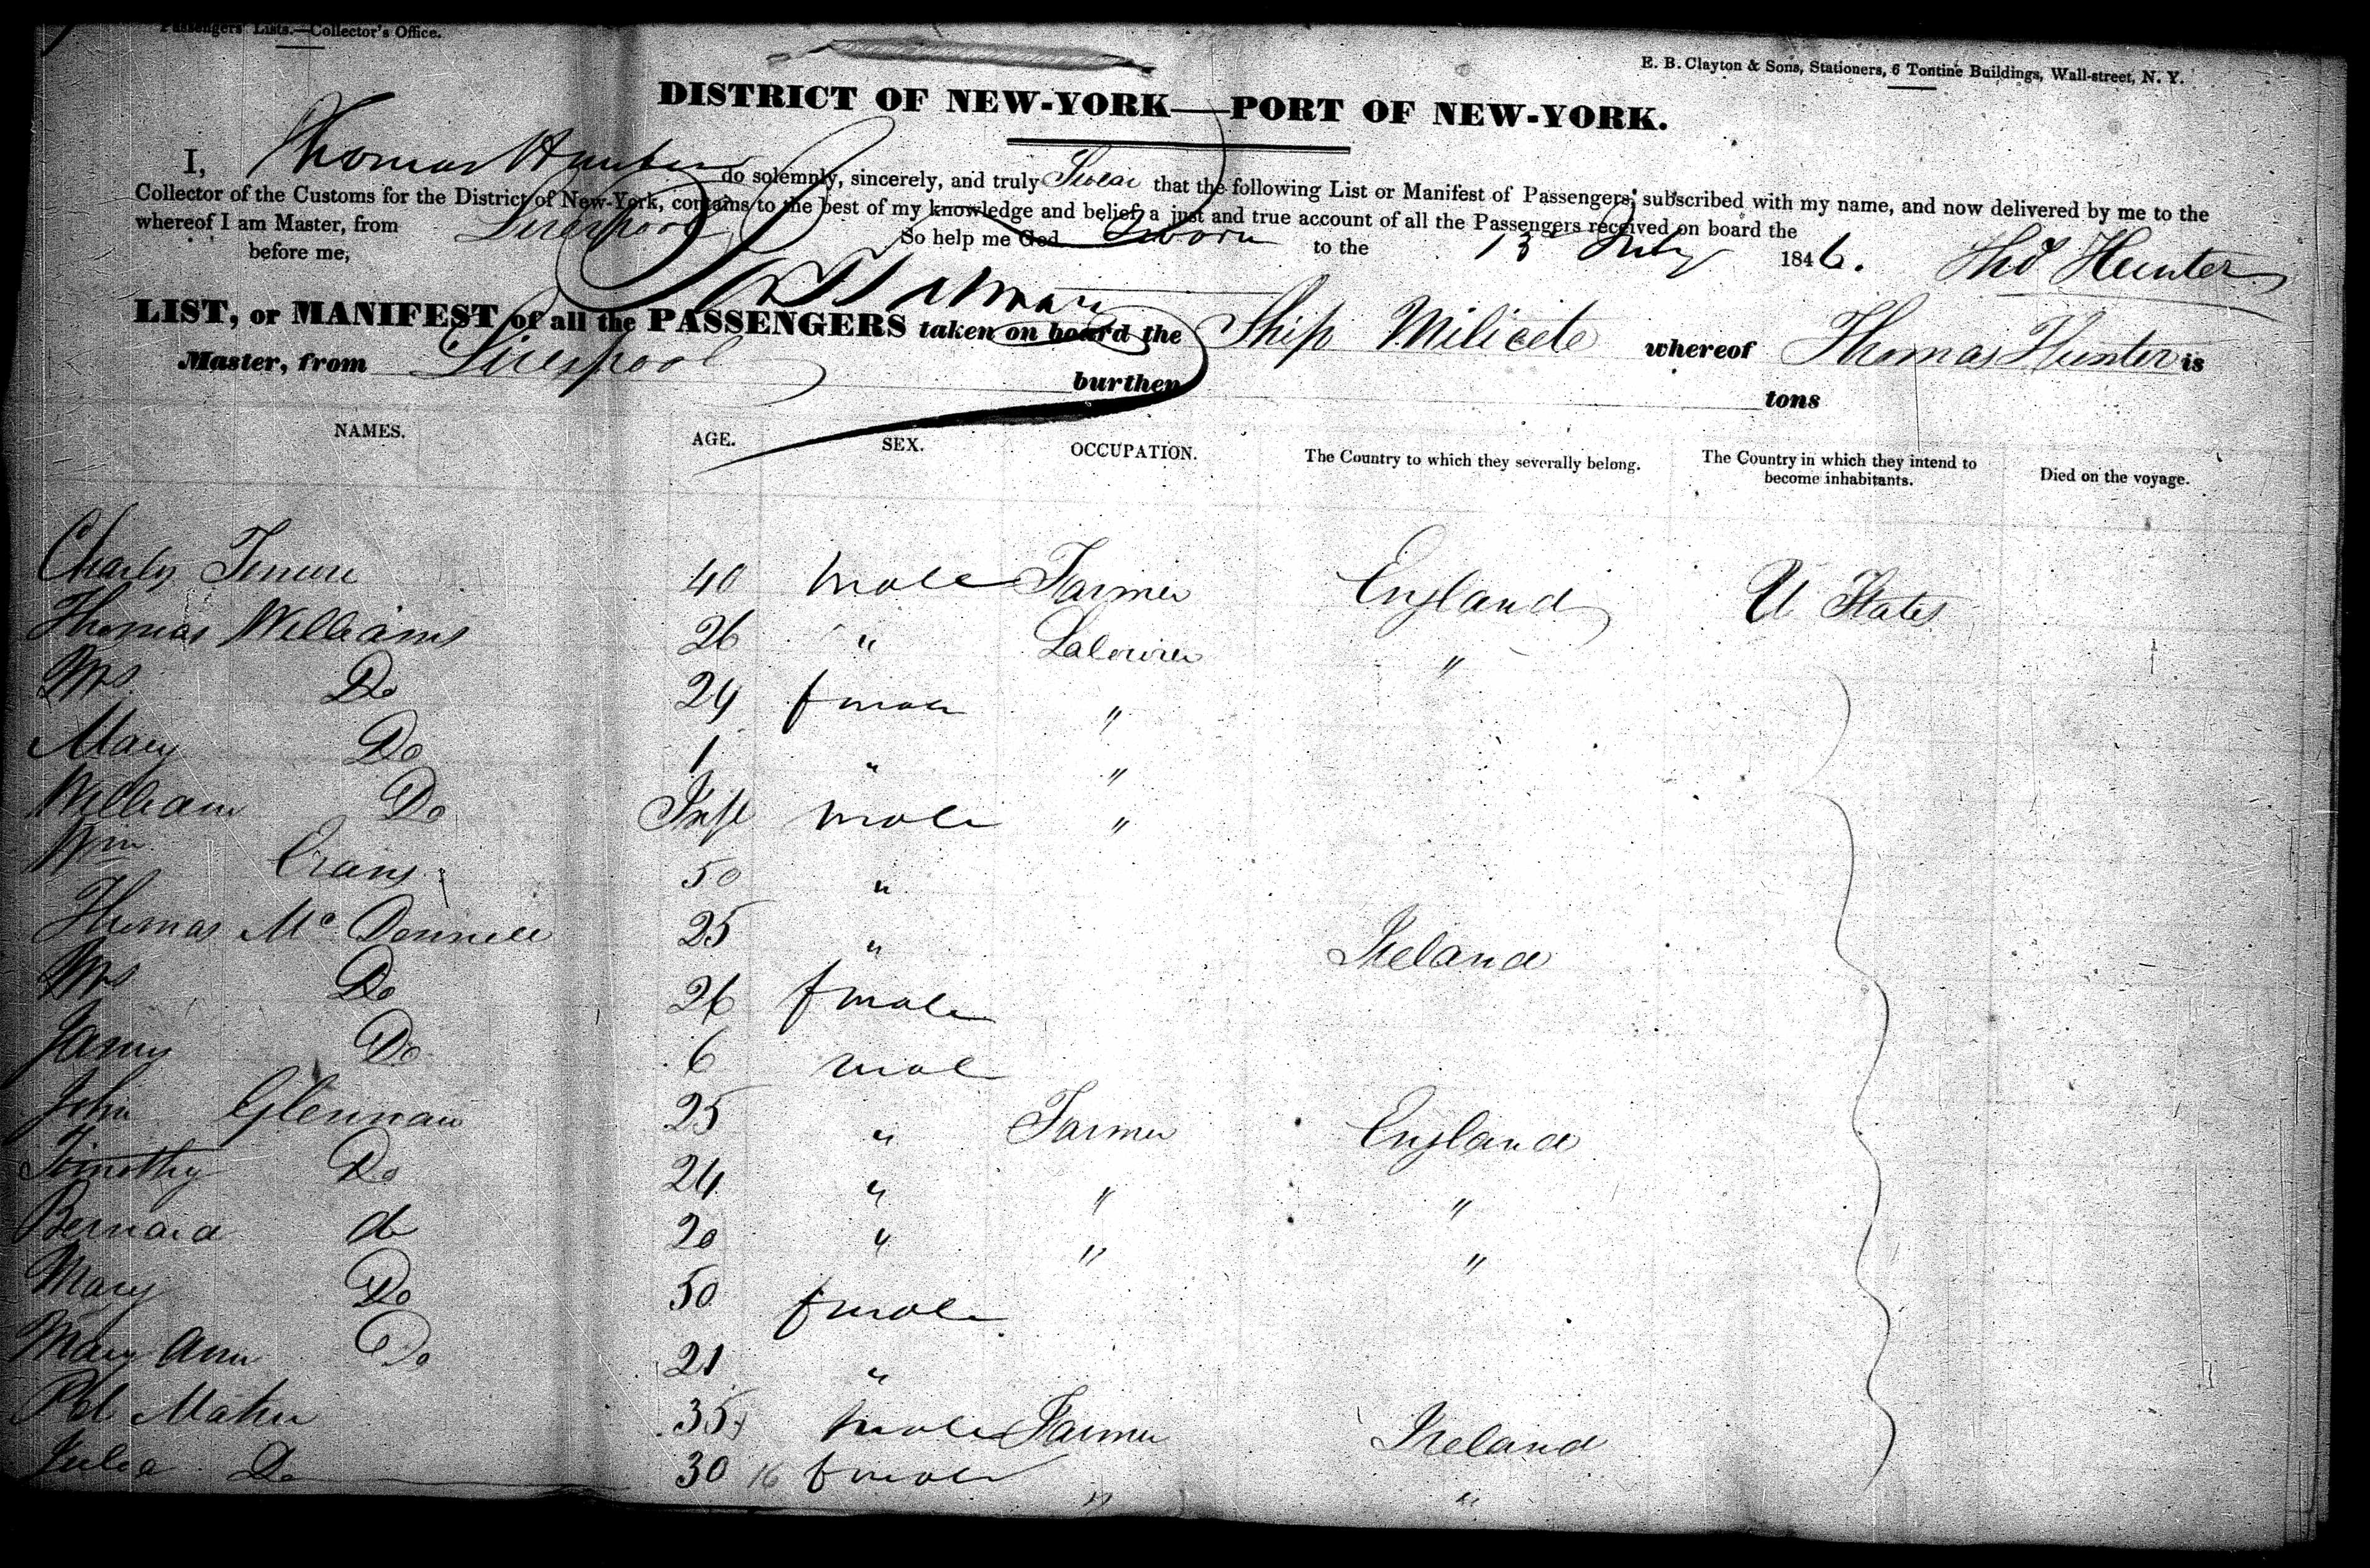 Passengers' Lists.—Collector's Office.
E. B. Clayton & Sons, Stationers, 6 Tontine Buildings, Wall-street, N. Y.
DISTRICT OF NEW-YORK—PORT OF NEW-YORK.
I, Thomas Hunter do solemnly, sincerely, and truly Swear that the following List or Manifest of Passengers, subscribed with my name, and now delivered by me to the
Collector of the Customs for the District of New-York, contains to the best of my knowledge and belief, a just and true account of all the Passengers received on board the
whereof I am Master, from Liverpool
So help me God. Sworn to the 13 July 1846. Tho^s Hunter
before me,
LIST, or MANIFEST of all the PASSENGERS taken on board the Ship Milicete whereof Thomas Hunter is
Master, from Liverpool burthen tons
NAMES. AGE. SEX. OCCUPATION. The Country to which they severally belong. The Country in which they intend to become inhabitants. Died on the voyage.
Charles 40 male Farmer England U States
Thomas Williams 26 " Labourer "
Mrs Do 24 female "
Mary Do 1 " "
William Do Inft male "
Wm Evans 50 "
Thomas Mc Donnell 25 " Ireland
Mrs Do 26 female
James Do 6 male
John Glennan 25 " Farmer England
Timothy Do 24 " " "
Bernard do 20 " " "
Mary Do 50 female
Mary Ann Do 21 "
Pat Maher 35 male Farmer Ireland
Julia Do 30 16 female " "